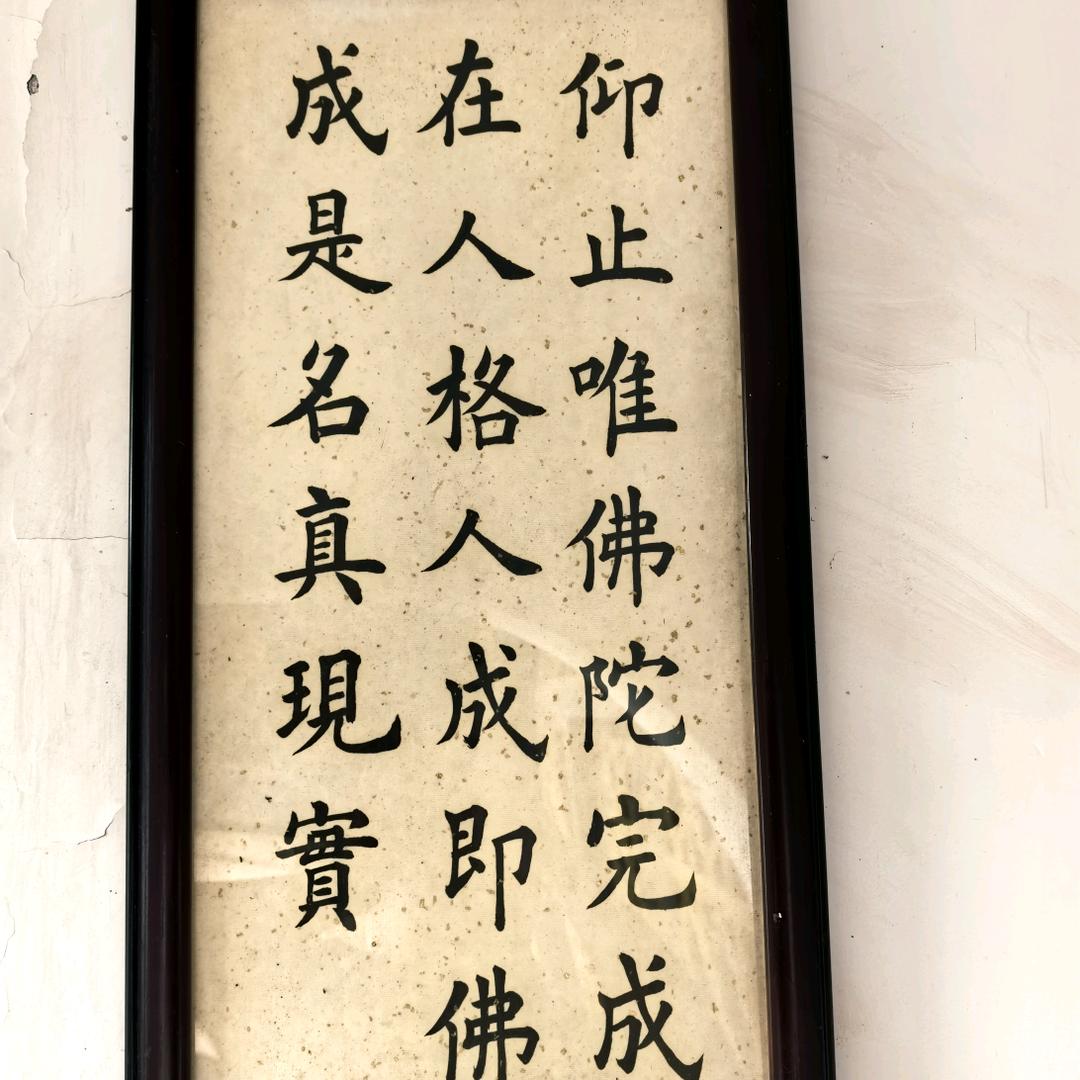 仰止唯佛陀完成
在人格人成即佛
成是名真現實